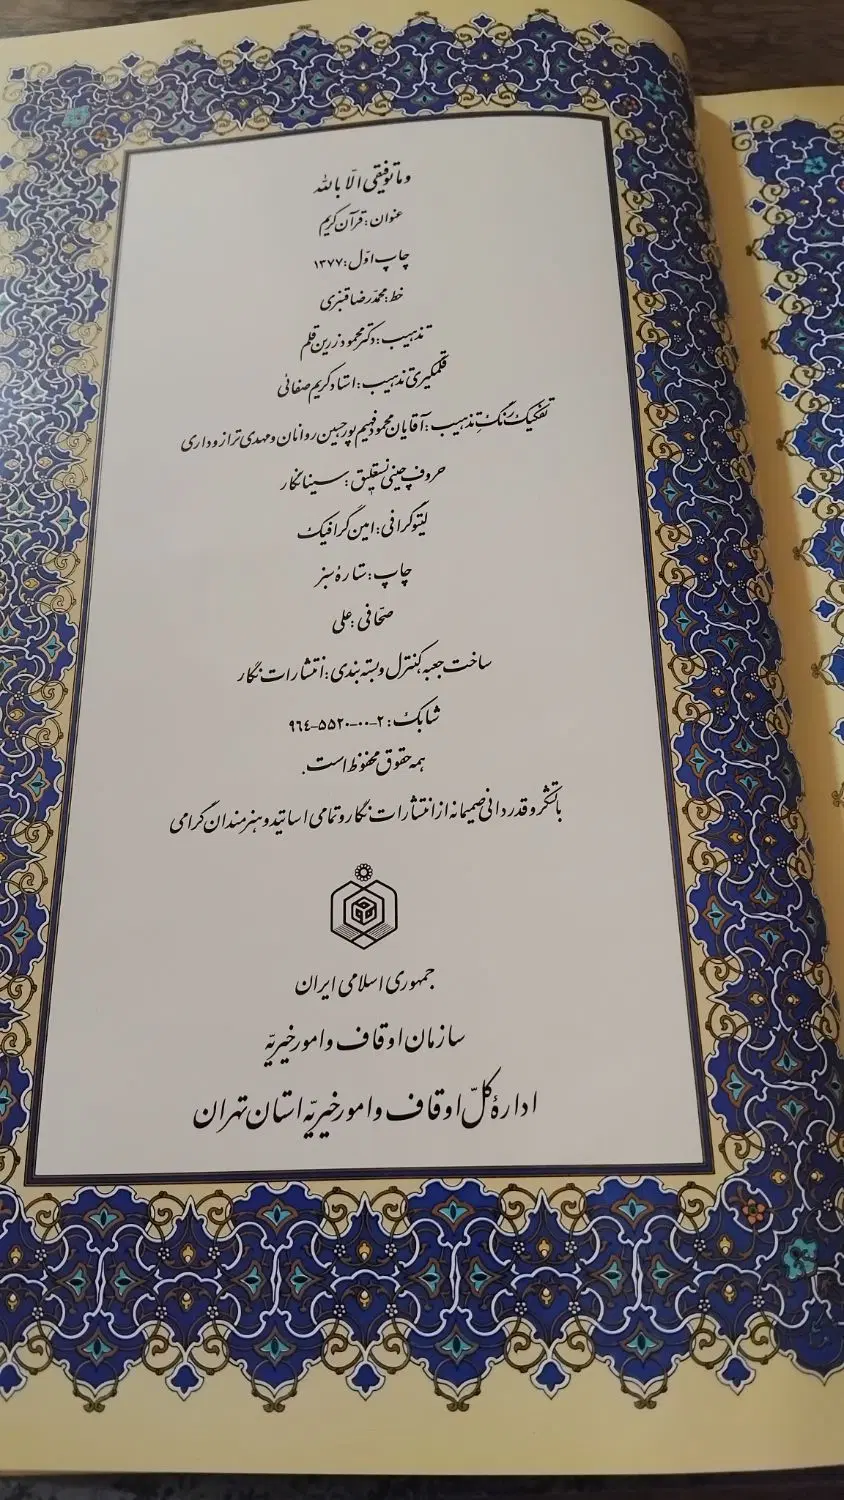 وما توفیقی الّا باللّه
عنوان: قرآن کریم
چاپ اوّل: ۱۳۷۷
خط: محمّدرضا قنبری
تذهیب: دکتر محمود زرین قلم
قلمگیری تذهیب: استاد کریم صفائی
تفکیک رنگ تذهیب: آقایان محمود فهیم پور حسین روانان و مهدی ترازوداری
حروف چینی نستعلیق: سینانگار
لیتوگرافی: امین گرافیک
چاپ: ستارهٔ سبز
صحّافی: علی
ساخت جعبه، کنترل و بسته بندی: انتشارات نگار
شابک: ۲-۰۰-۵۵۲۰-۹۶٤
همه حقوق محفوظ است.
با تشکر و قدردانی صمیمانه از انتشارات نگار و تمامی اساتید و هنرمندان گرامی
جمهوری اسلامی ایران
سازمان اوقاف و امور خیریّه
ادارهٔ کلّ اوقاف و امور خیریّه استان تهران